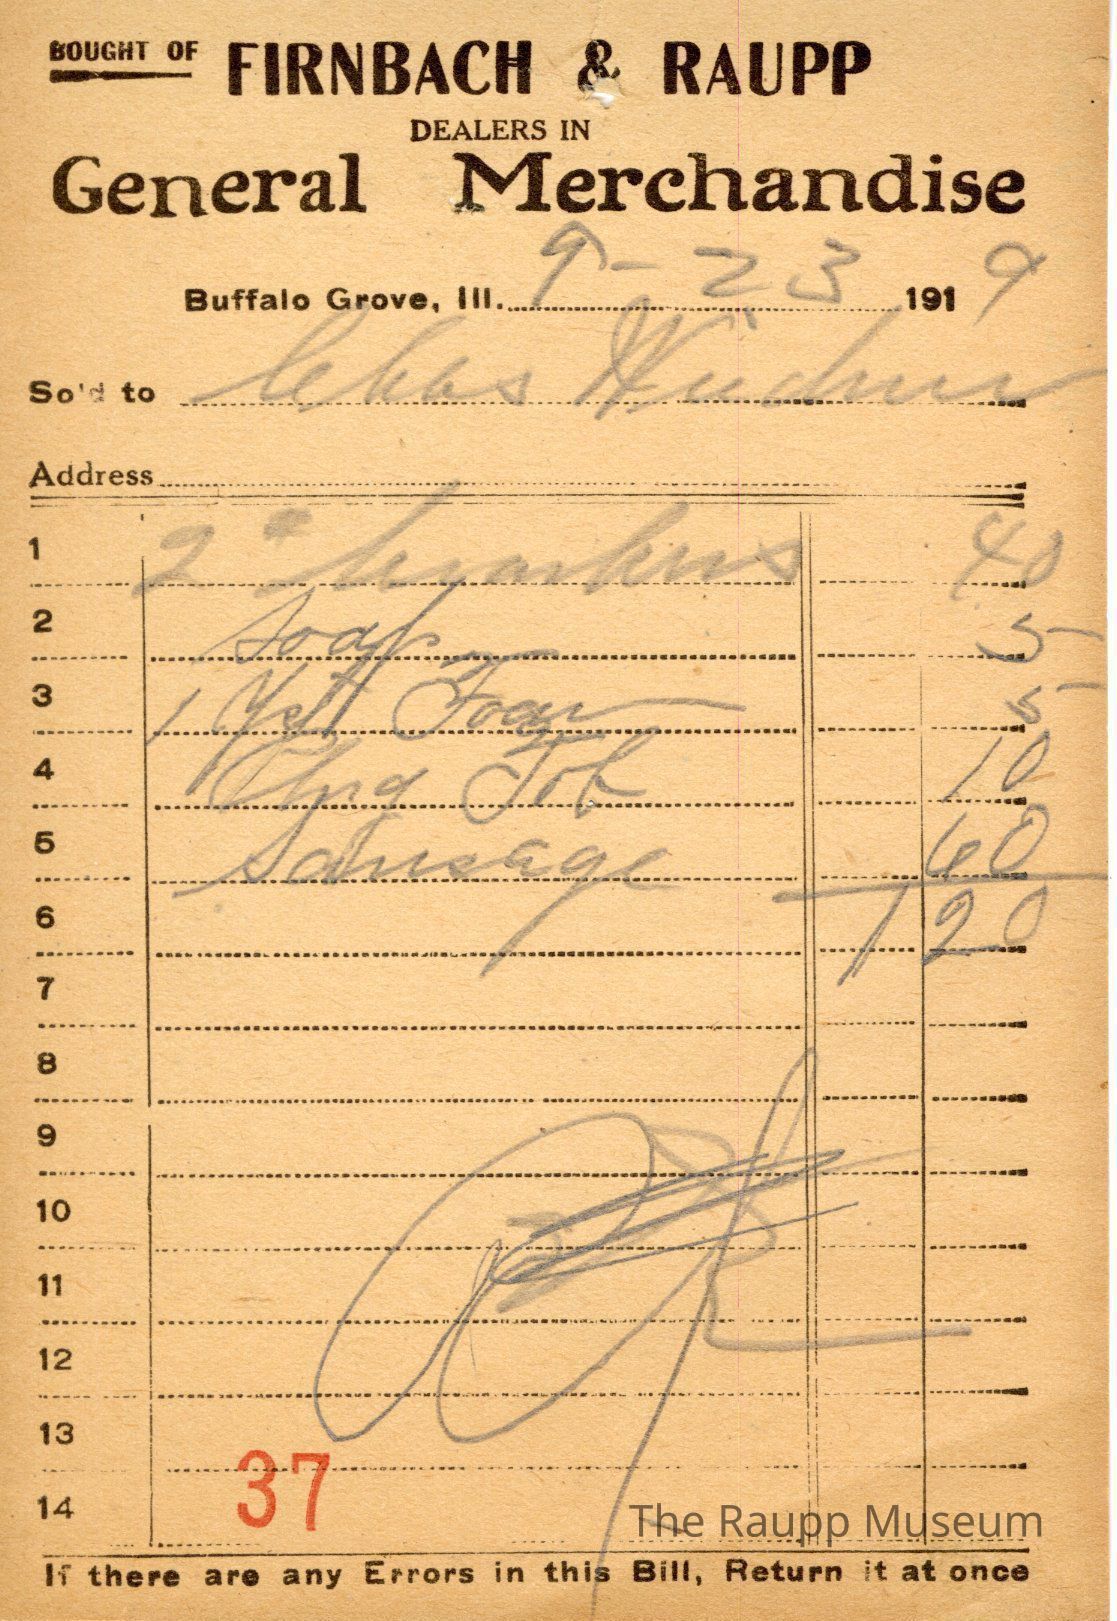 BOUGHT OF FIRNBACH & RAUPP
DEALERS IN
General Merchandise
Buffalo Grove, Ill. 9-23 1919
Sold to Chas
Address
1 2 # 40
2 Soap 5
3 1 Yst Foam 5
4 Chng Tob 10
5 Sausage 60
6 1 20
7
8
9
10
11
12
13
37
14
The Raupp Museum
If there are any Errors in this Bill, Return it at once